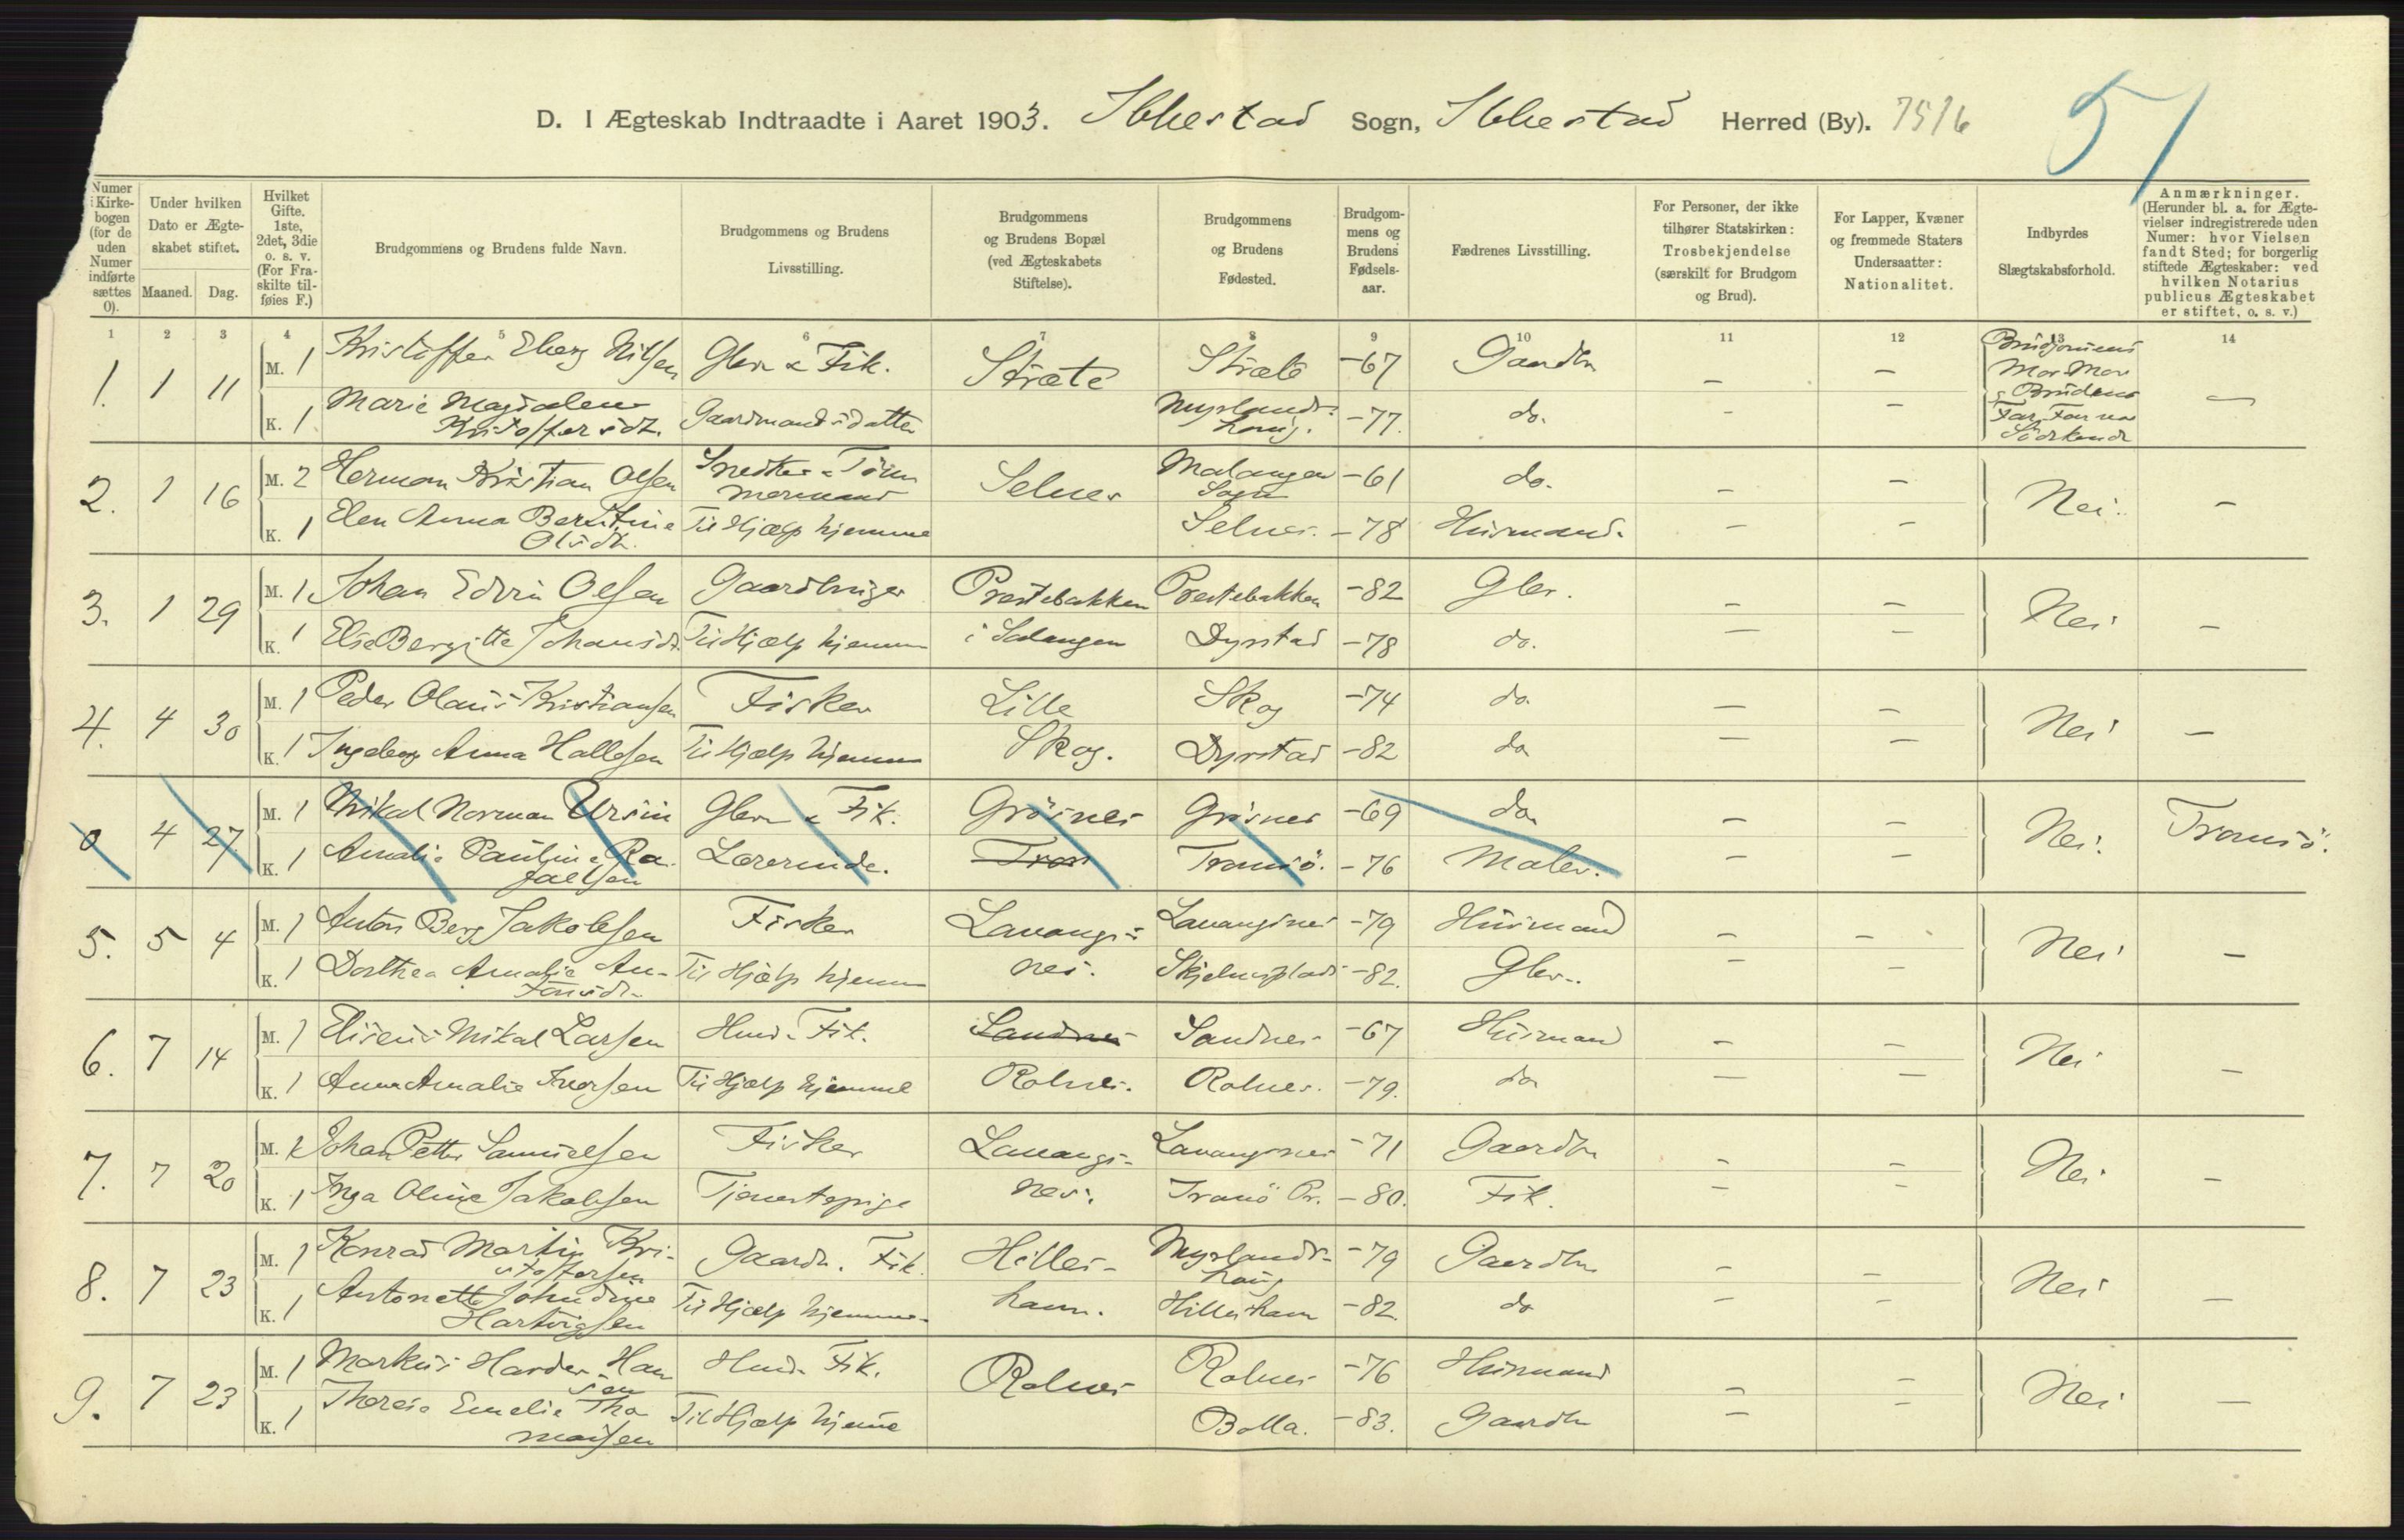 D. I Ægteskab Indtraadte i Aaret 1903. Ibbestad Sogn, Ibbestad Herred (By). 7516 51
Numer i Kirkebogen (for de uden Numer indførte sættes 0).
Under hvilken Dato er Ægteskabet stiftet. Maaned. Dag.
Hvilket Gifte. 1ste, 2det, 3die o. s. v. (For Fraskilte tilføies F.)
Brudgommens og Brudens fulde Navn.
Brudgommens og Brudens Livsstilling.
Brudgommens og Brudens Bopæl (ved Ægteskabets Stiftelse).
Brudgommens og Brudens Fødested.
Brudgommens og Brudens Fødselsaar.
Fædrenes Livsstilling.
For Personer, der ikke tilhører Statskirken: Trosbekjendelse (særskilt for Brudgom og Brud).
For Lapper, Kvæner og fremmede Staters Undersaatter: Nationalitet.
Indbyrdes Slægtskabsforhold.
Anmærkninger. (Herunder bl. a. for Ægtevielser indregistrerede uden Numer: hvor Vielsen fandt Sted; for borgerlig stiftede Ægteskaber: ved hvilken Notarius publicus Ægteskabet er stiftet, o. s. v.)
1 2 3 4 5 6 7 8 9 10 11 12 13 14
1. 1 11 M. 1 Kristoffer Eberg Nilsen Gbr. & Fisk. Stræte Stræte -67 Gaardbr — — Brudgomens Mor Mor og Brudens Far Far var Södskende —
K. 1 Marie Magdalene Kristoffersdt. Gaardmandsdatter Myrlandshaug. -77. do. — —
2. 1 16 M. 2 Herman Kristian Olsen Snedker & Tömmermand Selnes Malangen Sogn -61 do. — — Nei. —
K. 1 Elen Anna Berntine Olsdt. Til Hjælp hjemme Selnes. -78 Husmand. — —
3. 1 29 M. 1 Johan Edvin Olsen Gaardbruger Prestebakken Prestebakken -82 Gbr. — — Nei —
K. 1 Elise Bergitte Johansdt. Til Hjælp hjemme i Salangen Dyrstad -78 do. — —
4. 4 30 M. 1 Peder Olaus Kristiansen Fisker Lille Skog -74 do. — — Nei —
K. 1 Ingeborg Anna Hallesen Til Hjælp hjemme Skog. Dyrstad -82 do — —
0 4 27. M. 1 Mikal Norman Ursin Gbr. & Fisk. Grösnes Grösnes -69 do. — — Nei. Tromsö.
K. 1 Amalie Pauline Rafaelsen Lærerinde. Trom Tromsö. -76 Maler. — —
5. 5 4 M. 1 Anton Berg Jakobsen Fisker Lavangs- Lavangsnes -79 Husmand — — Nei —
K. 1 Dorthea Amalie Antonsdt. Til Hjælp hjemme nes. -82. Gbr. — —
6. 7 14 M. 1 Eliseus Mikal Larsen Husm. Fisk. Sandnes Sandnes -67 Husmand — — Nei —
K. 1 Anna Amalie Iversen Til Hjælp hjemme Rolnes. Rolnes. -79. do — —
7. 7 20 M. 2 Johan Petter Samuelsen Fisker Lavangs- Lavangsnes -71 Gaardbr — — Nei —
K. 1 Inga Oline Jakobsen Tjenestepige nes. Tranö Pr. -80. Fisk. — —
8. 7 23 M. 1 Konrad Martin Kristoffersen Gaardbr. Fisk. Hilles- Myrlandshaug -79 Gaardbr. — — Nei —
K. 1 Antonette Johndine Hartvigsen Til Hjælp hjemme hamn. Hilleshamn -82. do — —
9. 7 23 M. 1 Markus Harder Hansen Husm. Fisk. Rolnes Rolnes -76 Husmand — — Nei —
K. 1 Therese Emelie Thomassen Til Hjælp hjemme Bolla. -83. Gaardbr — —